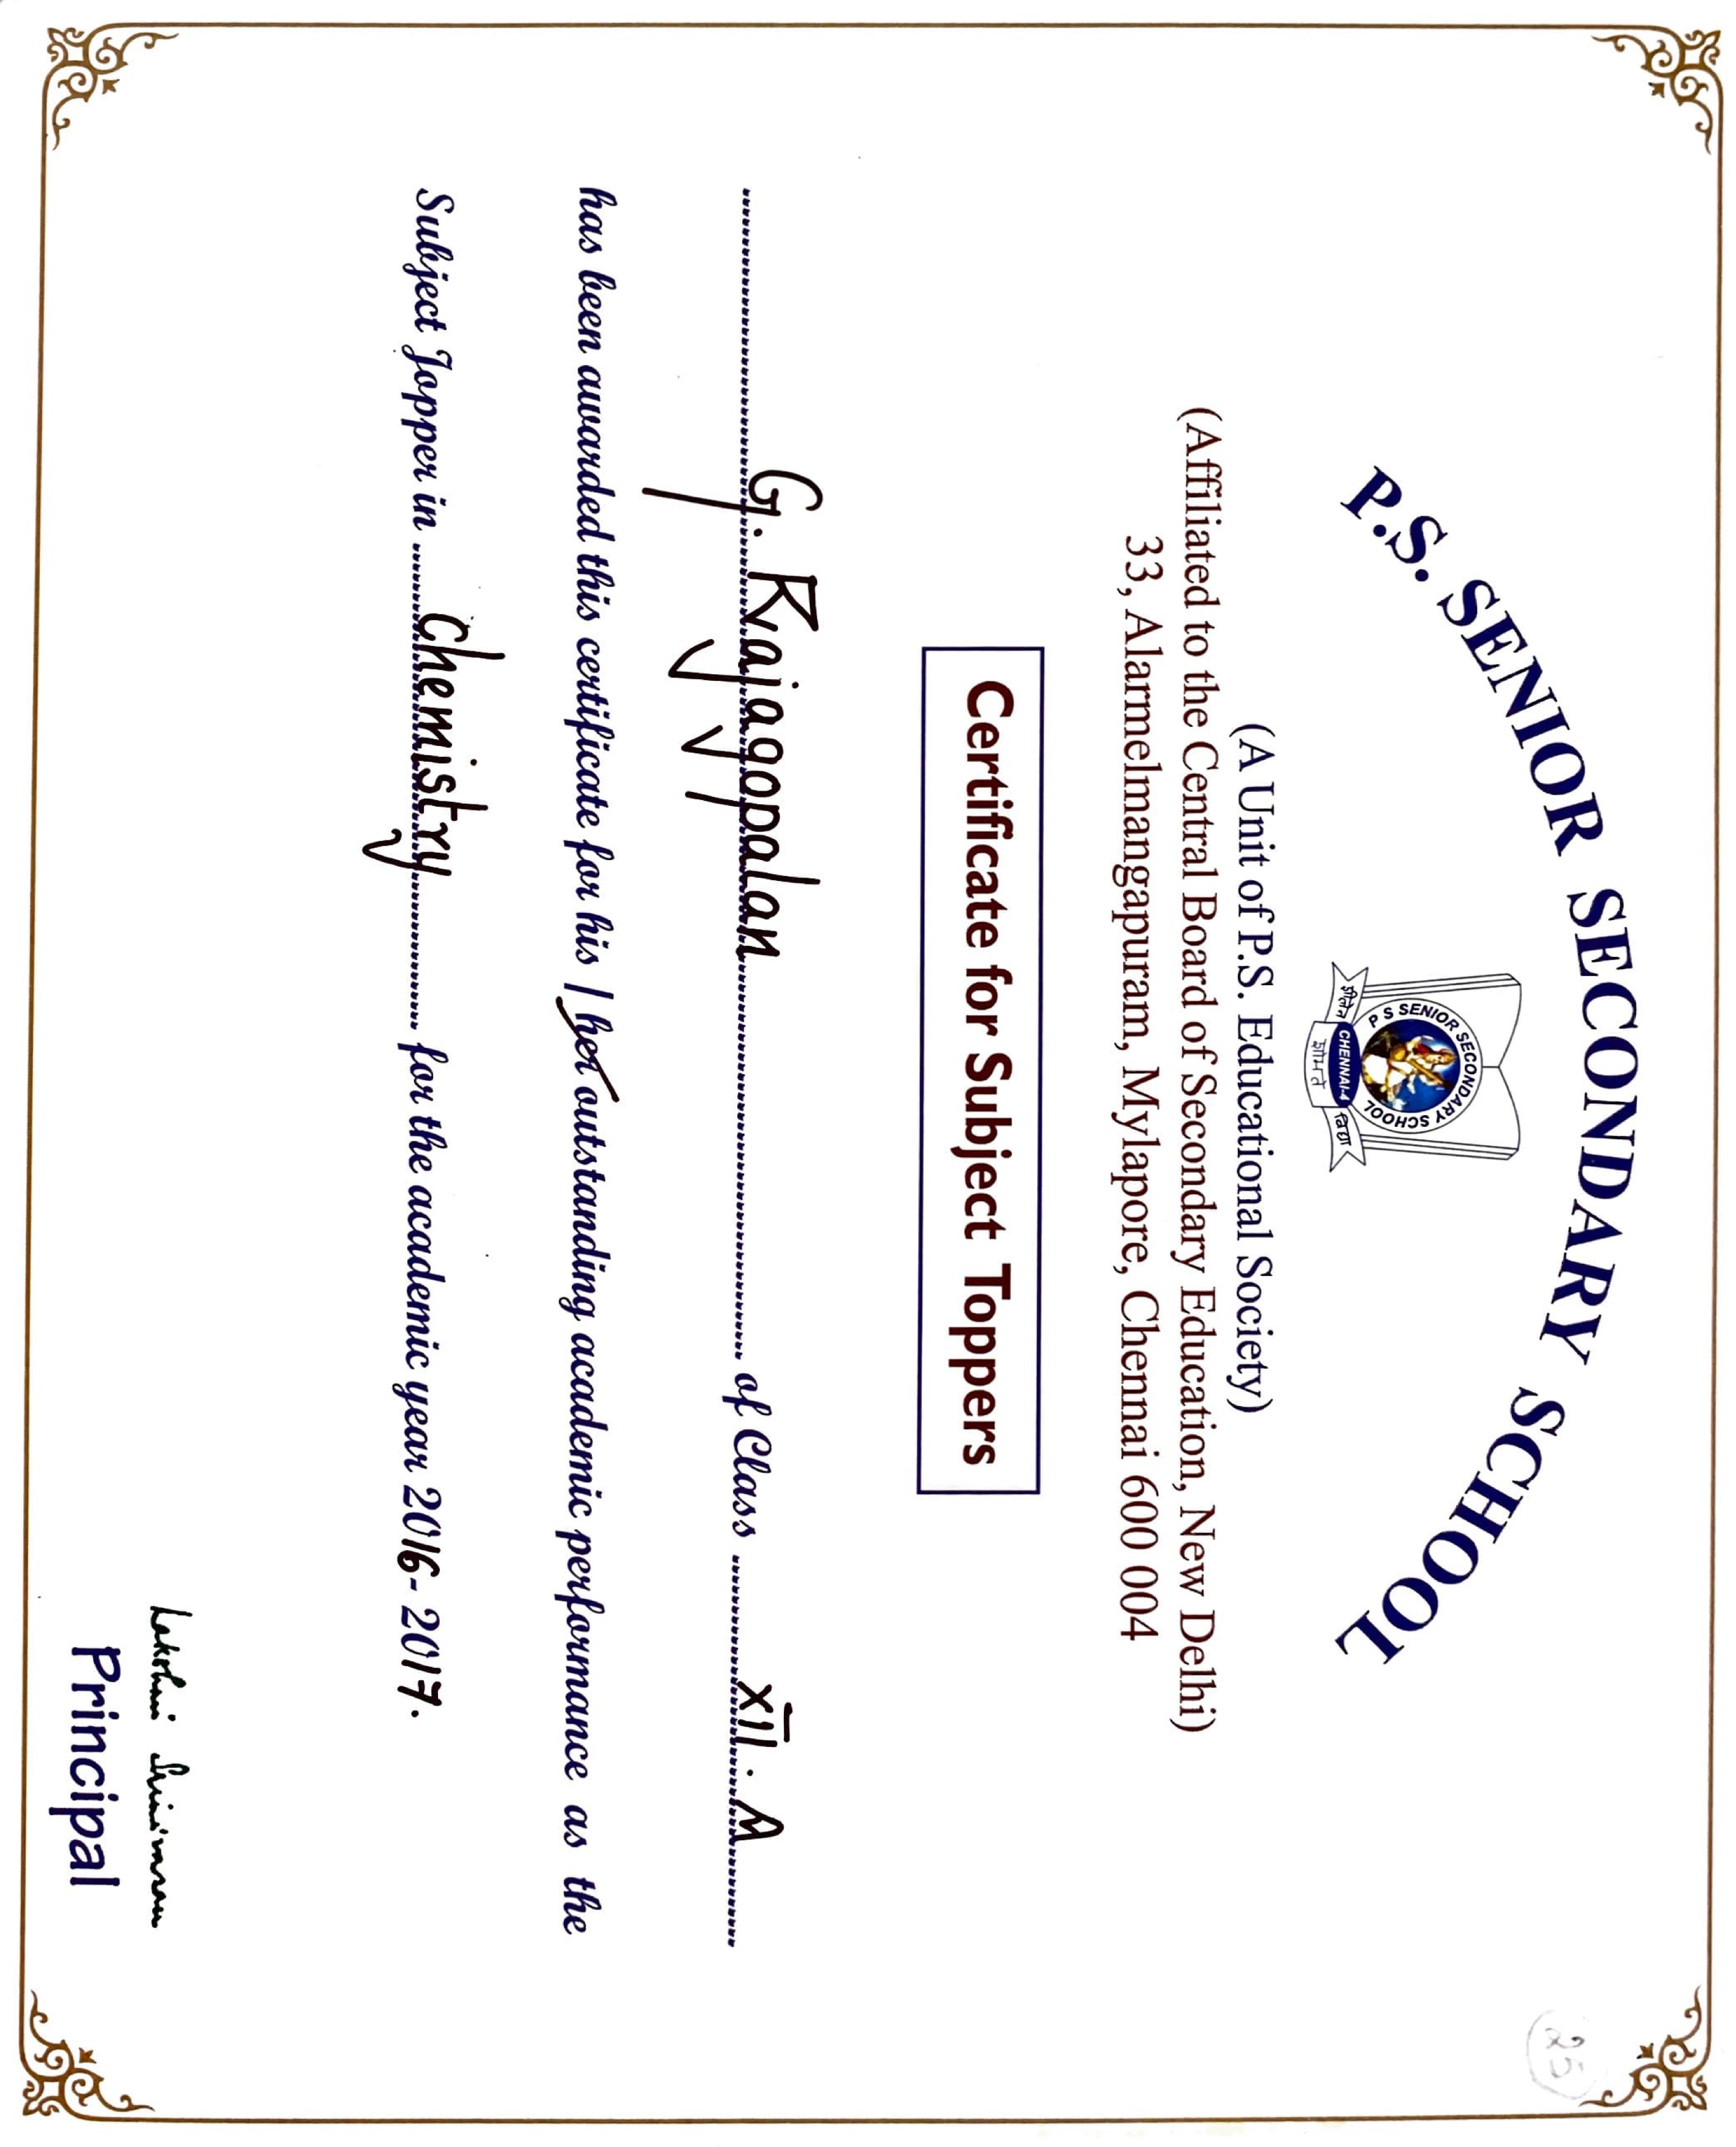 25
P.S. SENIOR SECONDARY SCHOOL
P S SENIOR SECONDARY SCHOOL
शीलेन CHENNAI-4 विद्या
शोभते
(A Unit of P.S. Educational Society)
(Affiliated to the Central Board of Secondary Education, New Delhi)
33, Alarmelmangapuram, Mylapore, Chennai 600 004
Certificate for Subject Toppers
G. Rajagopalan of Class XII. A
has been awarded this certificate for his / her outstanding academic performance as the
Subject Topper in Chemistry for the academic year 2016-2017.
Lakshmi Srinivasan
Principal